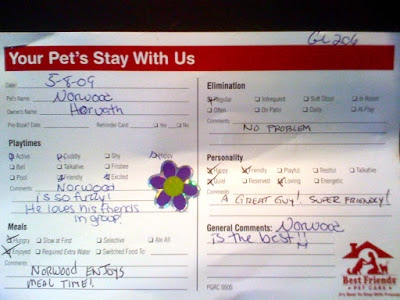 GL 206
Your Pet's Stay With Us
Date: 5-8-09
Pet's Name: Norwood
Owner's Name: Horvath
Pre-Book? Date Reminder Card Yes No
Playtimes
Active Cuddly Shy Happy
Ball Talkative Frisbee
Pool Friendly Excited
Comments: Norwood
is so funny!
He loves his friends
in group!
Meals
Hungry Slow at First Selective Ate All
Enjoyed Required Extra Water Switched Food To:
Comments:
NORWOOD ENJOYS
MEAL TIME!
Elimination
Regular Infrequent Soft Stool In-Room
Often On Patio Daily At Play
Comments:
NO PROBLEM
Personality
Happy Friendly Playful Restful Talkative
Quiet Reserved Loving Energetic
Comments:
A GREAT GUY! SUPER FRIENDLY!
General Comments: Norwood
is the best!!
Best Friends
PET CARE
It's Best To Stay With Friends
FGRC 0605